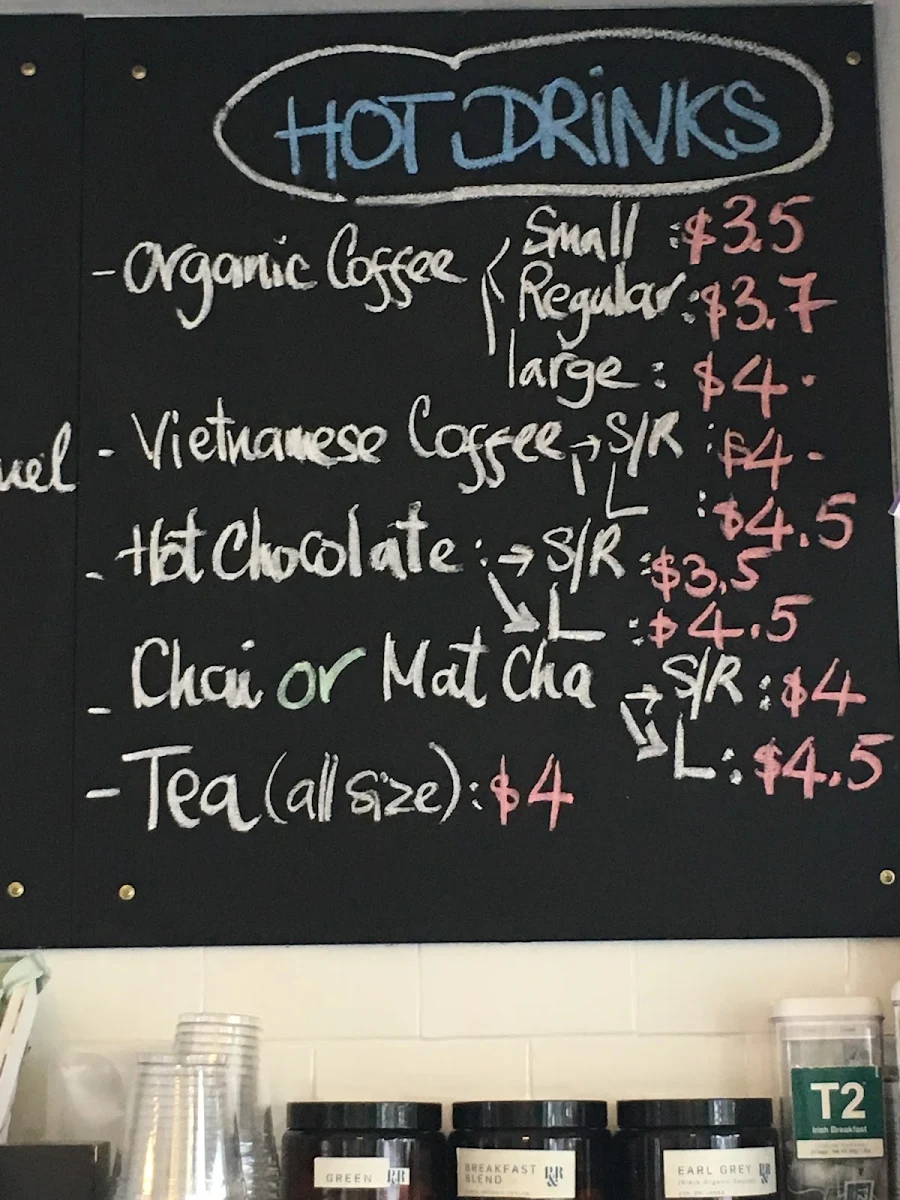 HOT DRiNKS
- Organic Coffee
Small : $3.5
Regular : $3.7
large : $4.
- Vietnamese Coffee → S/R : $4-
L : $4.5
- Hot Chocolate : → S/R : $3,5
L : $4.5
- Chai or Mat Cha → S/R : $4
L : $4.5
- Tea (all size) : $4
T2
Irish Breakfast
GREEN
BREAKFAST
BLEND
EARL GREY